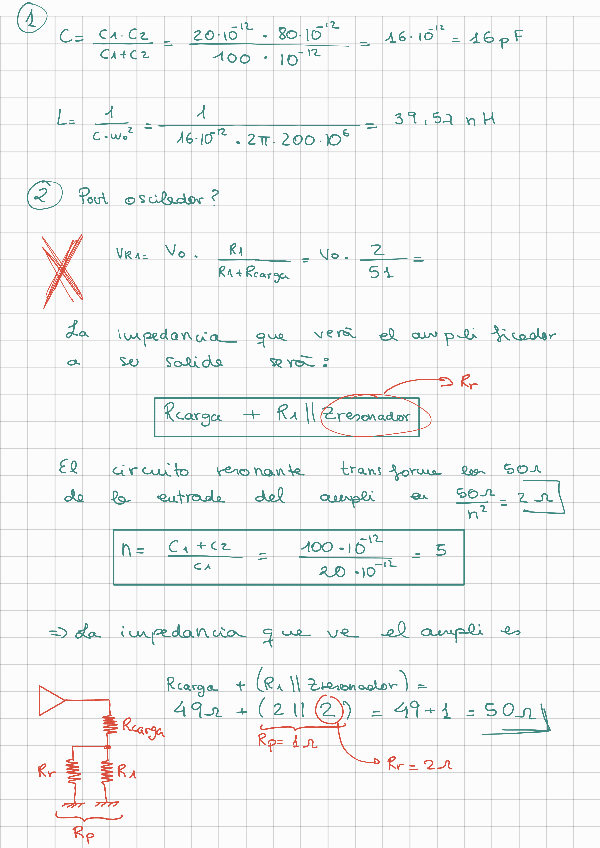 1
C = C1·C2 / C1+C2 = 20·10^-12 · 80·10^-12 / 100·10^-12 = 16·10^-12 = 16 pF
L = 1 / C·ω0² = 1 / 16·10^-12 · 2π·200·10^6 = 39,57 nH
2 Pout oscilador?
VR1 = Vo · R1 / R1+Rcarga = Vo · 2 / 51 =
La impedancia que verá el amplificador
a su salida será:
Rr
Rcarga + R1 || Zresonador
El circuito resonante transforma los 50Ω
de la entrada del ampli en 50Ω / n² = 2 Ω
n = C1+C2 / C1 = 100·10^-12 / 20·10^-12 = 5
=> La impedancia que ve el ampli es
Rcarga + (R1 || Zresonador) =
49Ω + (2 || 2) = 49+1 = 50Ω
Rcarga
Rp = 1Ω
Rr = 2Ω
Rr R1
Rp